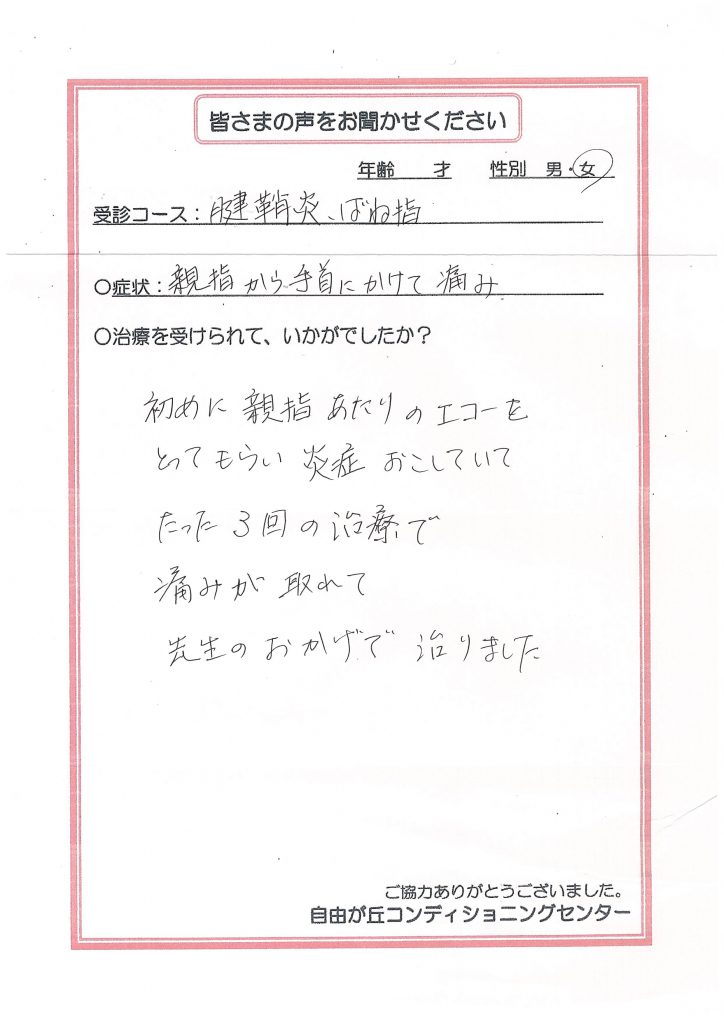 皆さまの声をお聞かせください
年齢　　才　　性別　男・女
受診コース：腱鞘炎、ばね指
○症状：親指から手首にかけて痛み
○治療を受けられて、いかがでしたか？
初めに親指あたりのエコーを
とってもらい炎症おこしていて
たった3回の治療で
痛みが取れて
先生のおかげで治りました
ご協力ありがとうございました。
自由が丘コンディショニングセンター